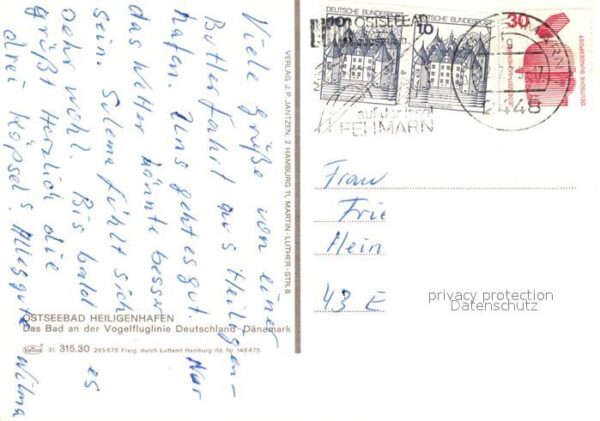 Viele Grüße von einer
Butterfahrt aus Heiligen-
hafen. Uns geht es gut. Nur
das Wetter könnte besser
sein. Selema fühlt sich
sehr wohl. Bis bald es
grüßt Herzlich die
drei Köpsel's. Alles gute Wilma
VERLAG J. P. JANTZEN, 2 HAMBURG 11, MARTIN-LUTHER-STR. 8
OSTSEEBAD HEILIGENHAFEN
Das Bad an der Vogelfluglinie Deutschland - Dänemark
31. 315.30 265676 Freig. durch Luftamt Hamburg lfd. Nr. 149475
DEUTSCHE BUNDESPOST
10
DEUTSCHE BUNDESPOST
10
30
DEUTSCHE BUNDESPOST
OSTSEEBAD
auf der Insel
FEHMARN
2448
Frau
Frie
Hein
43 E
privacy protection
Datenschutz